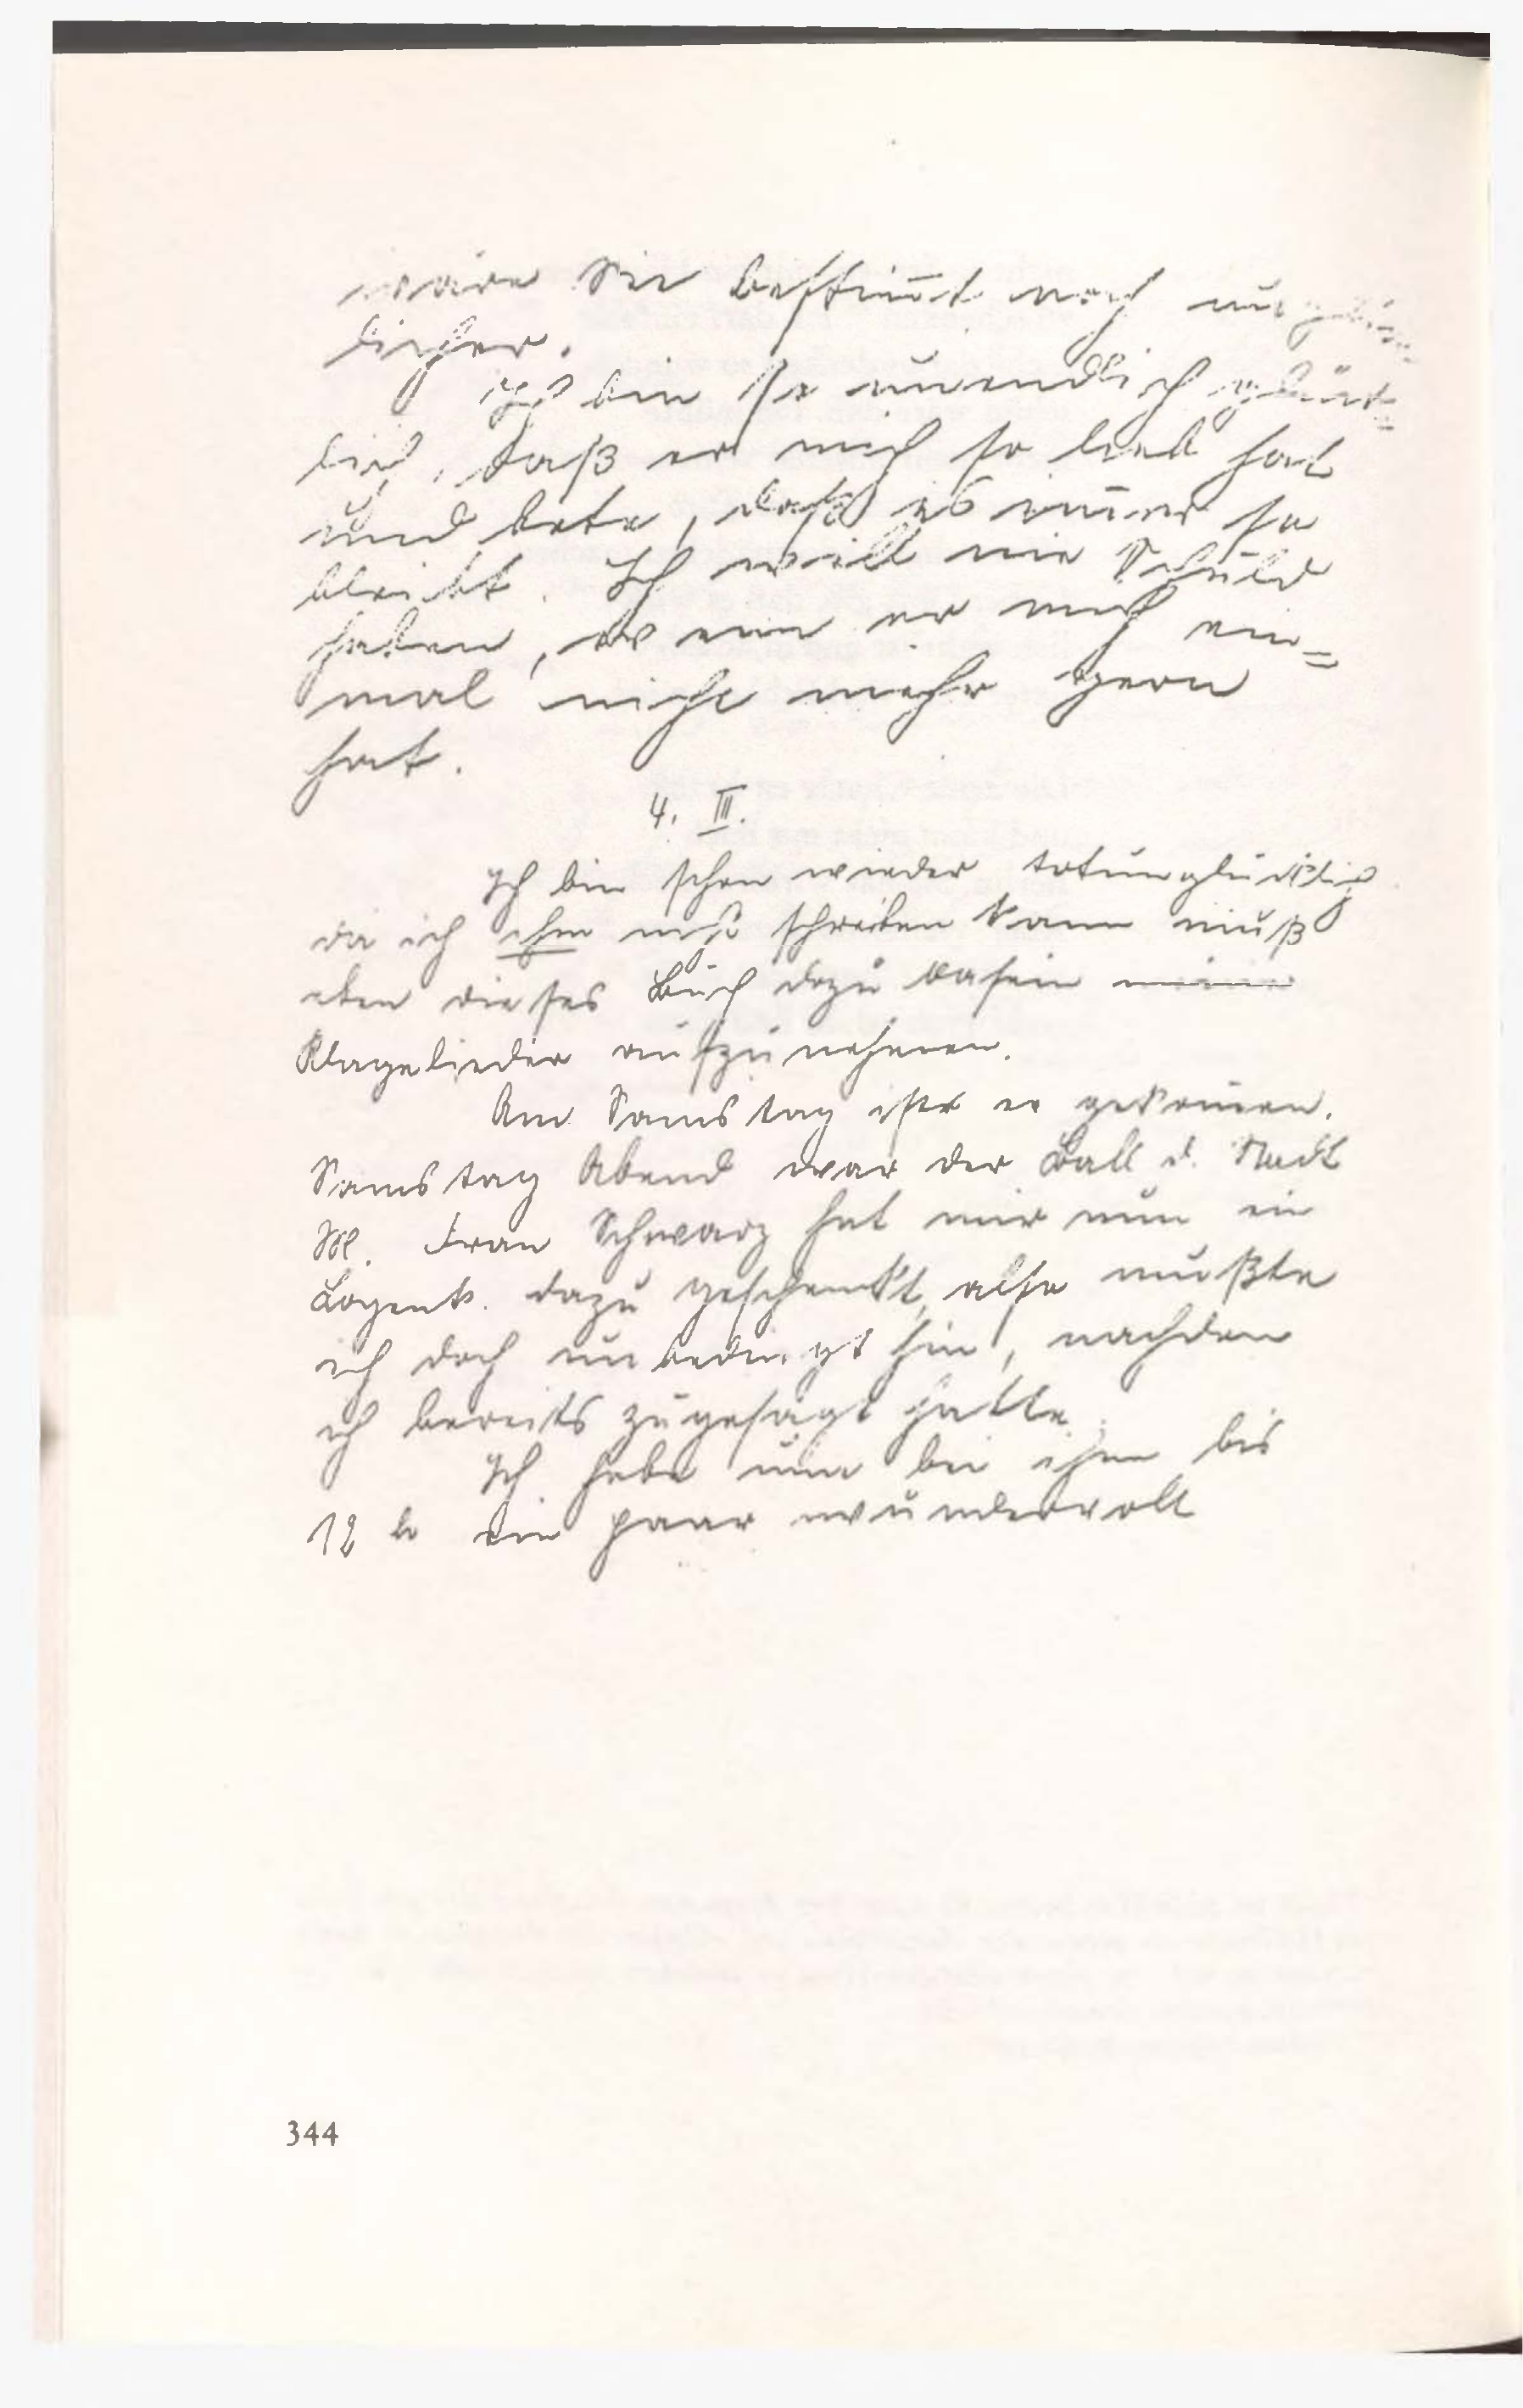 wäre Sie bestimmt noch
licher.
Ich bin so unendlich glück-
lich, daß er mich so lieb hat
und bete, daß es immer so
bleibt. Ich will nie Schuld
haben, wenn er mich ein=
mal nicht mehr gern
hat.
4. III.
Ich bin schon wieder totunglücklich
da ich ihm nicht schreiben kann muß
eben dieses Buch dazu dasein meine
Klagelieder aufzunehmen.
Am Samstag ist er gekommen.
Samstag Abend war der Ball d. Stadt
M. Frau Schwarz hat mir nun ein
Logenk. dazu geschenkt, also mußte
ich doch unbedingt hin, nachdem
ich bereits zugesagt hatte.
Ich habe nun bei ihm bis
12 h ein paar wundervoll
344